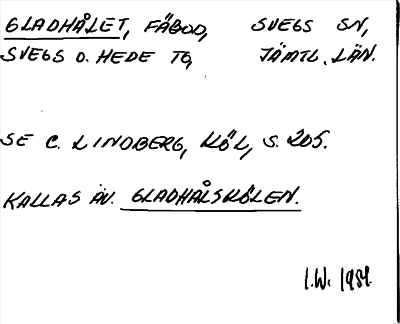 GLADHÅLET, FÄBOD, SVEGS SN,
SVEGS O. HEDE TG, JÄMTL. LÄN.
SE C. LINDBERG, KÖL, S. 205.
KALLAS ÄV. GLADHÅLSKÖLEN.
I.W. 1981.